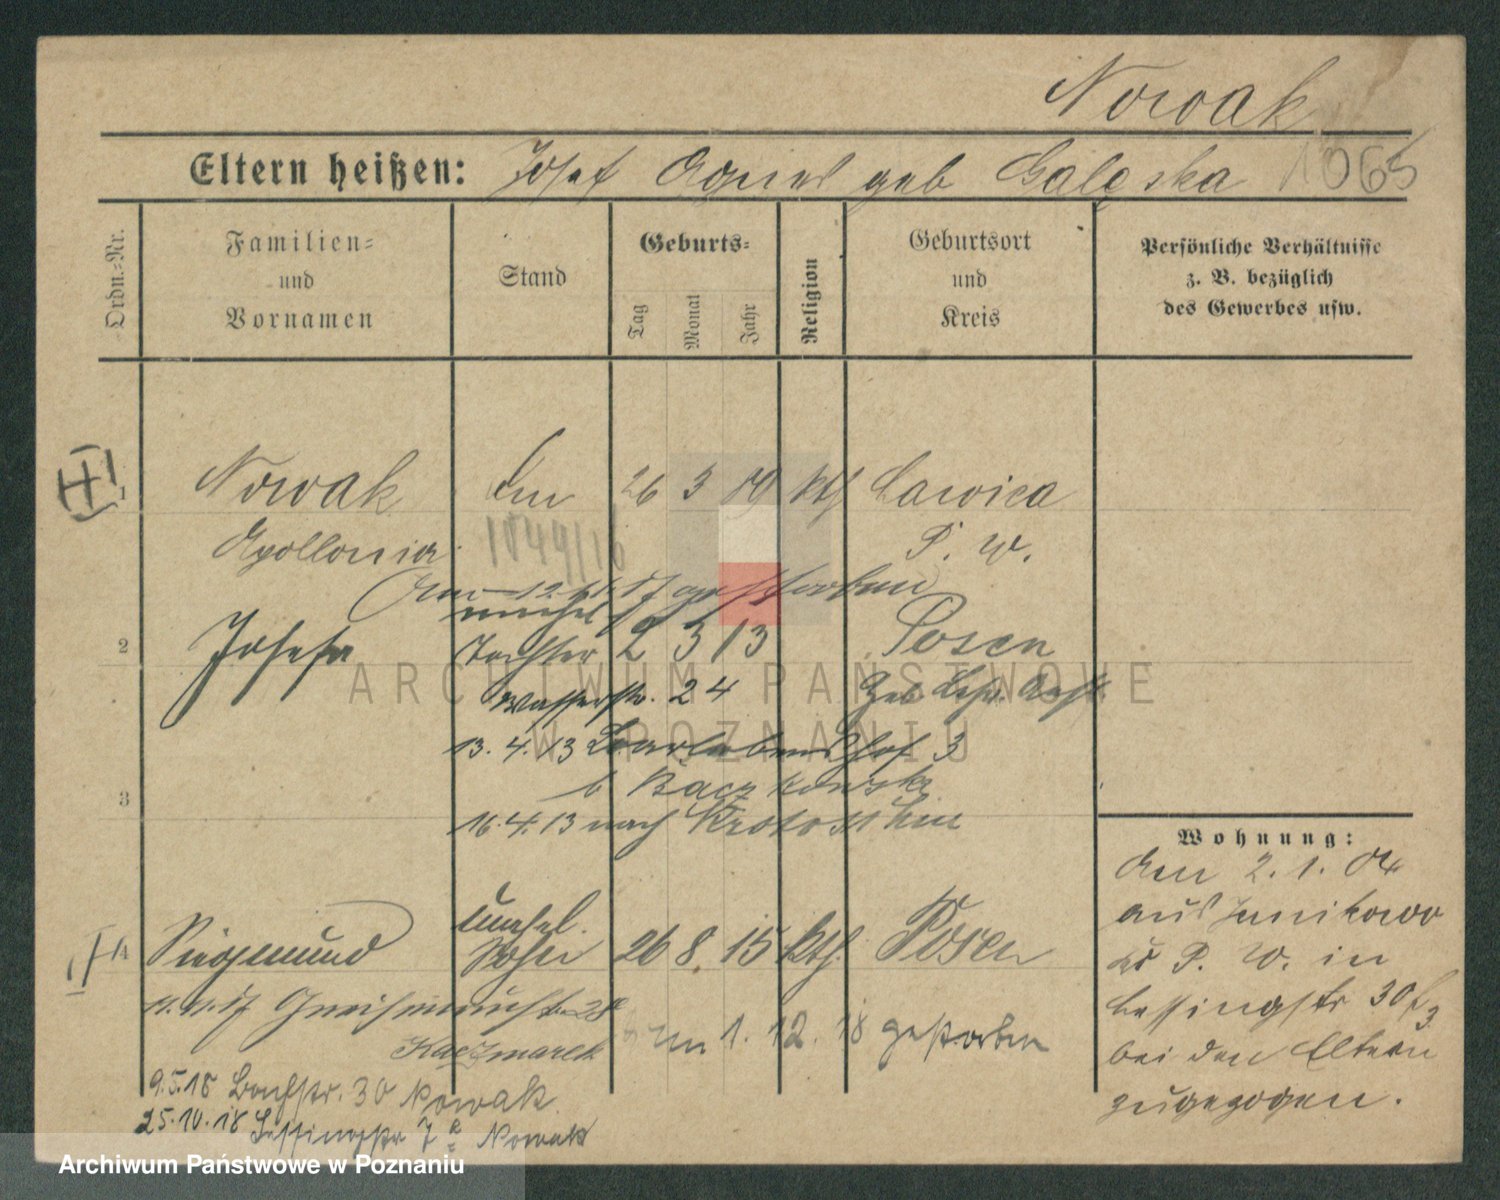 Nowak
Eltern heißen: Josef Agnes geb Galęska 1065
Ordn.-Nr.
Familien-
und
Vornamen
Stand
Geburts-
Tag
Monat
Jahr
Religion
Geburtsort
und
Kreis
Persönliche Verhältnisse
z. B. bezüglich
des Gewerbes usw.
1 Nowak 26 3 kth Lawica
Apollonia 1049/16 P. W.
am 12. 17 gestorben
unehel
2 Josefa Tochter 2 3 13 Posen
Wasserstr. 24
13.4.13 3
b
3
16.4.13 nach Krotoschin
unehel.
4 Siegmund Sohn 26 8. 15 kth. Posen
11.11.17 Gneisenaustr 28
Kaczmarek
am 1. 12. 18 gestorben
9.5.18 Bachstr. 30 Nowak
25.10.18 Lessingstr 7a Nowak
Wohnung:
den 2. 1. 04
aus Junikowo
Kr P. W. in
Lessingstr 30
bei den Eltern
zugezogen.
ARCHIWUM PAŃSTWOWE
W POZNANIU
Archiwum Państwowe w Poznaniu